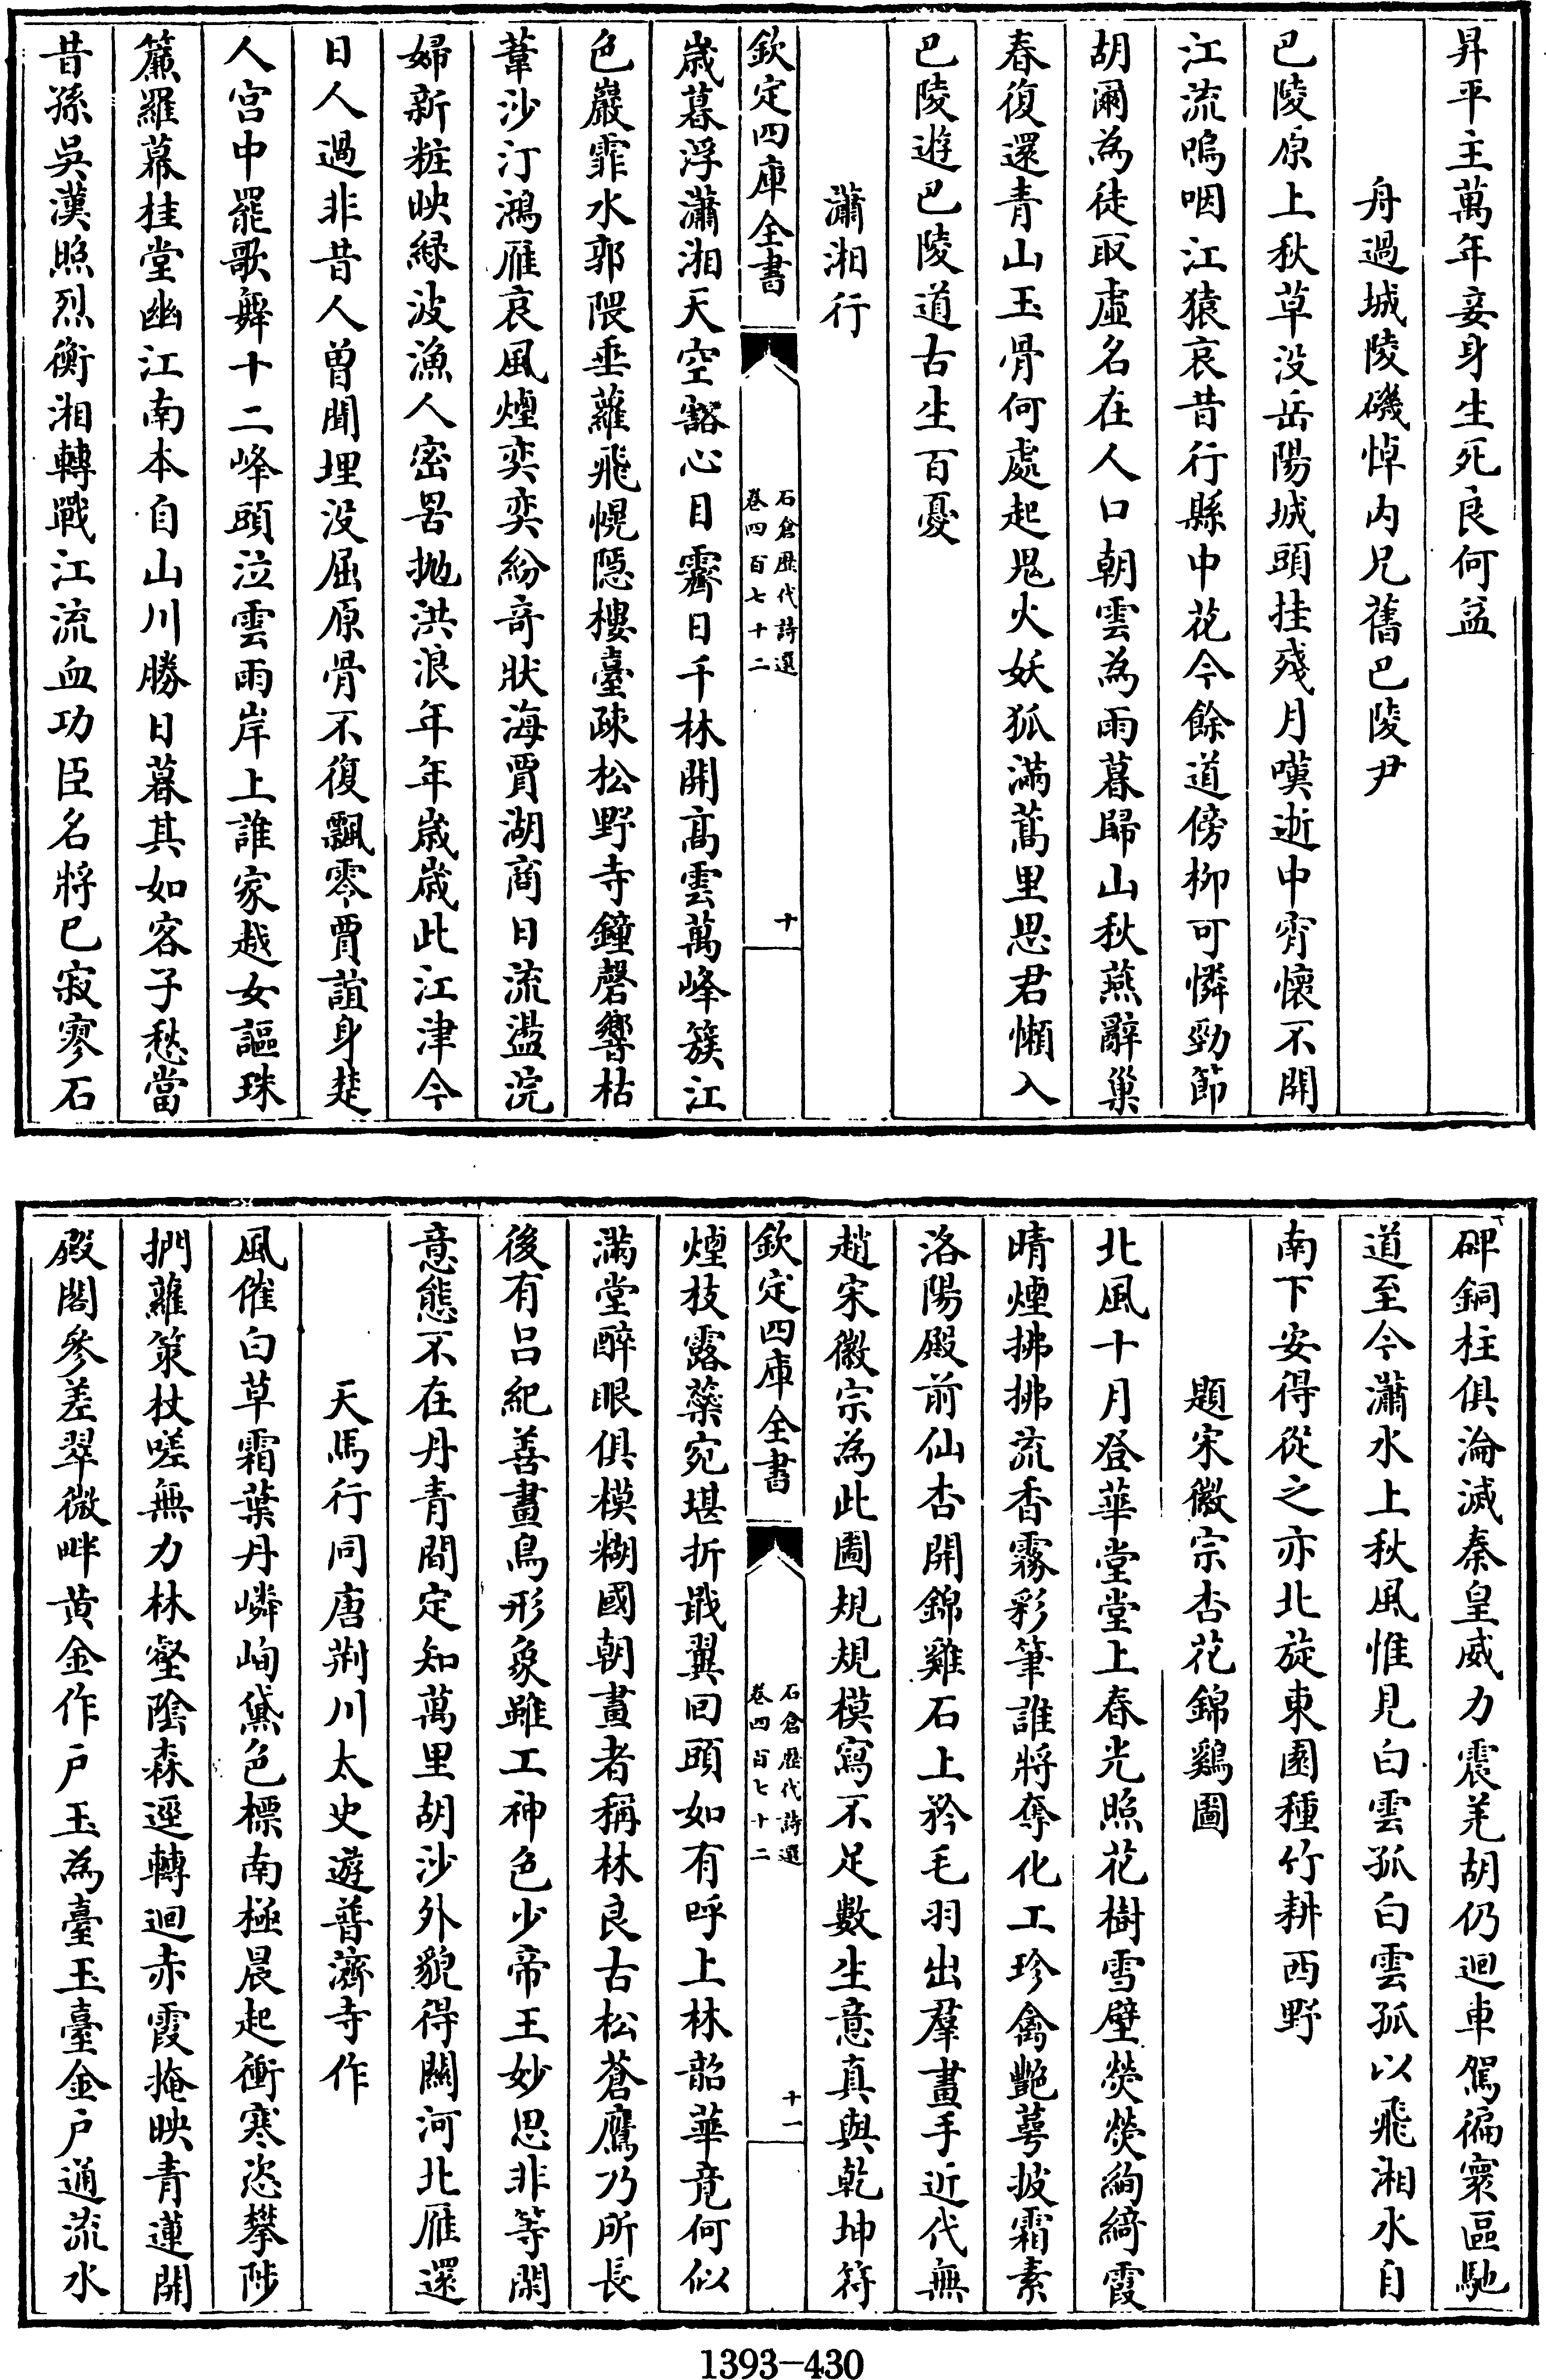 昇平主萬年妾身生死良何益
舟過城陵磯悼内兄舊巴陵尹
巴陵原上秋草没岳陽城頭挂殘月嘆逝中宵懷不開
江流嗚咽江猿哀昔行縣中花今餘道傍柳可憐勁節
胡爾為徒取虛名在人口朝雲為雨暮歸山秋燕辭巢
春復還青山玉骨何處起鬼火妖狐滿蒿里思君懶入
巴陵遊巴陵道古生百憂
瀟湘行
欽定四庫全書
石倉歷代詩選
卷四百七十二
十
歲暮浮瀟湘天空豁心目霽日千林開高雲萬峰簇江
色巖霏水郭隈垂蘿飛幌隱樓臺疎松野寺鐘磬響枯
葦沙汀鴻雁哀風煙奕奕紛奇狀海賈湖商日流盪浣
婦新粧映緑波漁人密罟抛洪浪年年歲歲此江津今
日人過非昔人曾聞埋没屈原骨不復飄零賈誼身楚
人宮中罷歌舞十二峰頭泣雲雨岸上誰家越女謳珠
簾羅幕桂堂幽江南本自山川勝日暮其如客子愁當
昔孫吳漢照烈衡湘轉戰江流血功臣名將已寂寥石
碑銅柱俱淪滅秦皇威力震羌胡仍迴車駕徧寰區馳
道至今瀟水上秋風惟見白雲孤白雲孤以飛湘水自
南下安得從之亦北旋東園種竹耕西野
題宋徽宗杏花錦鷄圖
北風十月登華堂堂上春光照花樹雪壁熒熒絢綺霞
晴煙拂拂流香霧彩筆誰將奪化工珍禽艶萼披霜素
洛陽殿前仙杏開錦雞石上矜毛羽出羣畫手近代無
趙宋徽宗為此圖規規模寫不足數生意真與乾坤符
欽定四庫全書
石倉歷代詩選
卷四百七十二
十一
煙枝露蘂宛堪折戢翼回頭如有呼上林韶華竟何似
滿堂醉眼俱模糊國朝畫者稱林良古松蒼鷹乃所長
後有吕紀善畫鳥形象雖工神色少帝王妙思非等閑
意態不在丹青間定知萬里胡沙外貌得關河北雁還
天馬行同唐荆川太史遊普濟寺作
風催白草霜葉丹嶙峋黛色標南極晨起衝寒恣攀陟
捫蘿策杖嗟無力林壑陰森逕轉迴赤霞掩映青蓮開
殿閣參差翠微畔黄金作户玉為臺玉臺金户通流水
1393—430